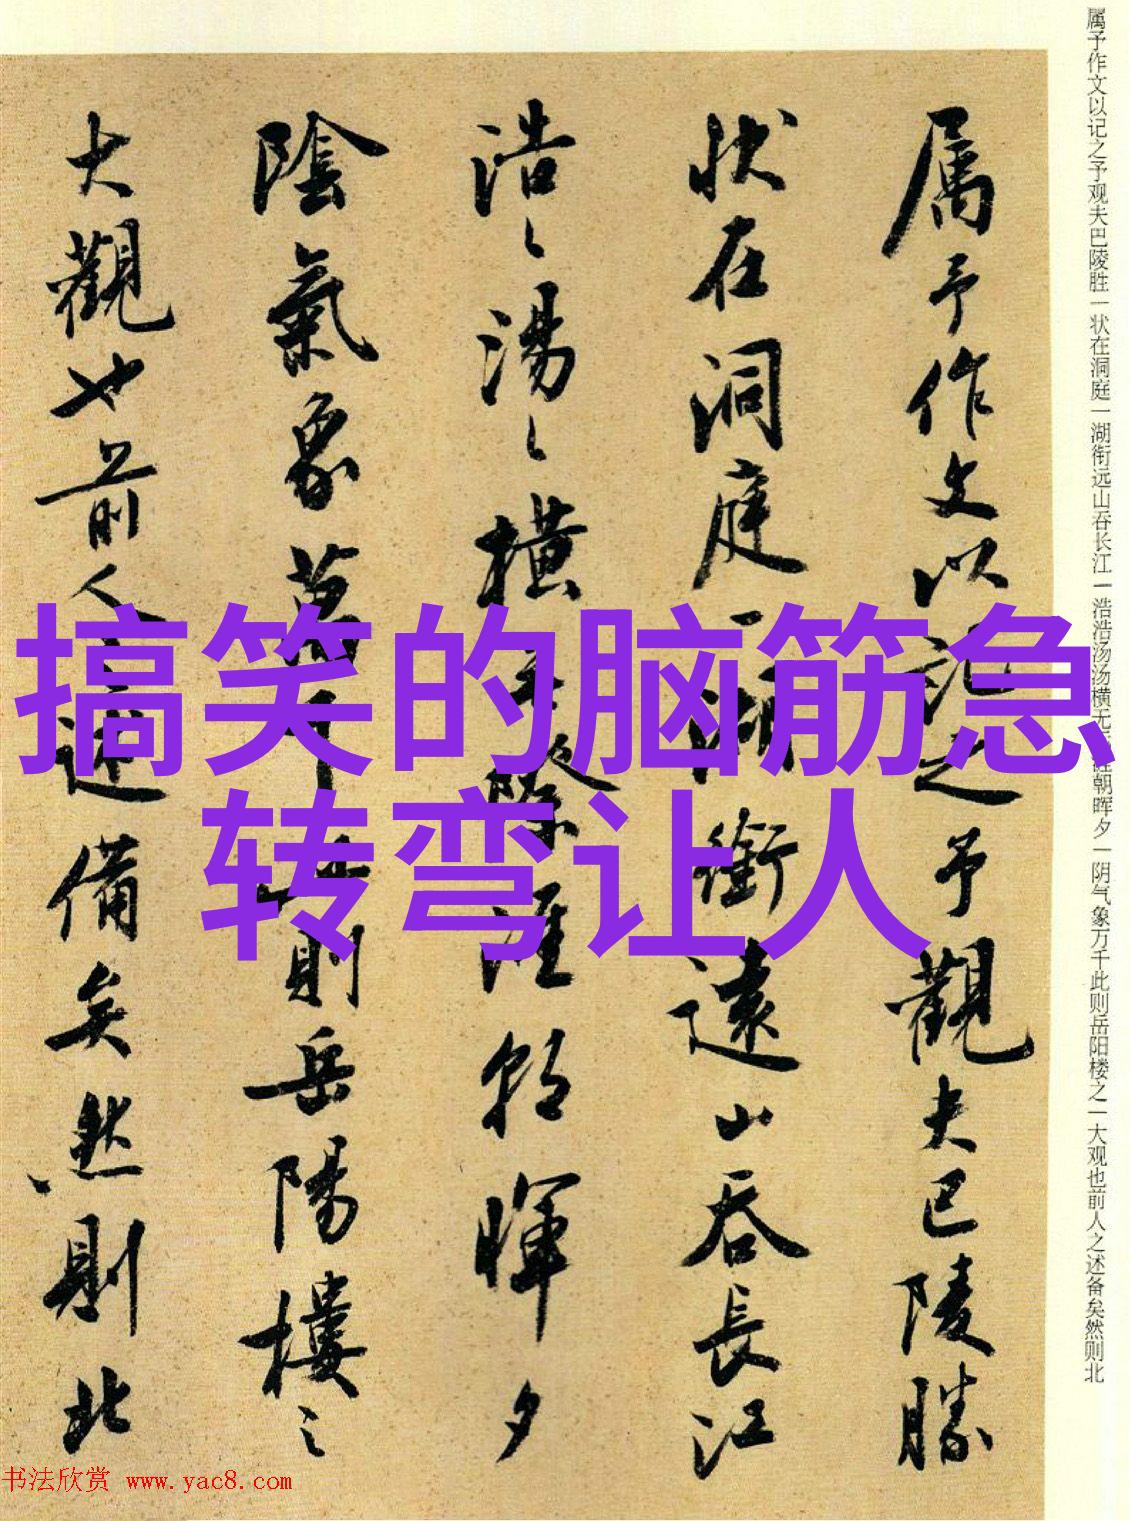 搞笑的脑筋急
转弯让人
属予作文以记之予观夫巴陵胜一状在洞庭一湖衔远山吞长江一浩浩汤汤横无际涯朝晖夕一阴气象万千此则岳阳楼之一大观也前人之述备矣然则北
属予作文以記之予觀夫巴陵勝
状在洞庭一湖銜遠山吞長江
浩〻湯〻橫無際涯朝暉夕
陰氣象萬千此則岳陽樓之
大觀也前人之述備矣然則北
书法欣赏 www.yac8.com